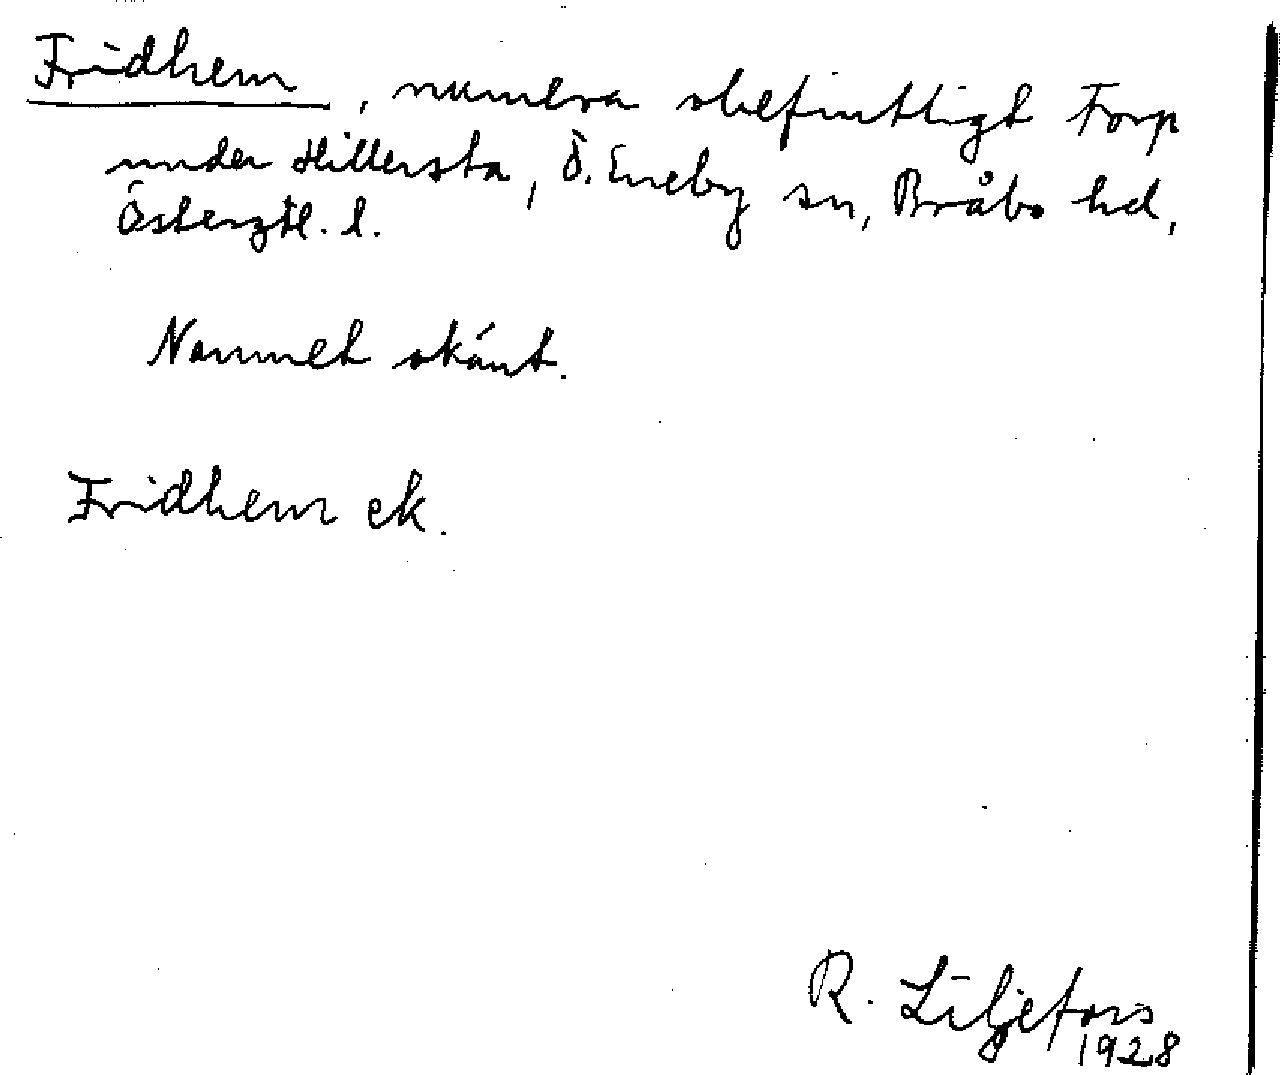 Fridhem, numera obefintligt Torp
under Hillersta, Ö. Eneby sn, Bråbo hd,
Östergtl. l.
Namnet okänt.
Fridhem ek.
R. Liljefors
1928